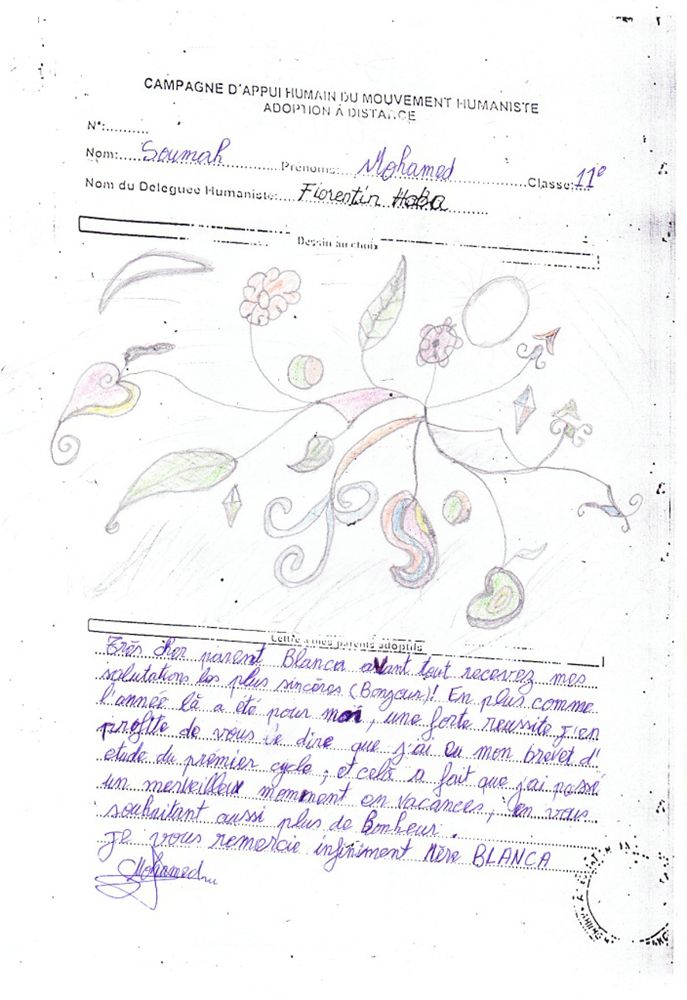 CAMPAGNE D'APPUI HUMAIN DU MOUVEMENT HUMANISTE
ADOPTION À DISTANCE
N°:..........
Nom: Soumah Prénoms: Mohamed Classe: 11e
Nom du Deleguée Humaniste: Fiorentin HaBa
Dessin au choix
Lettre à mes parents adoptifs
Très cher parent Blanca avant tout recevez mes
salutations les plus sincères (Bonjour)! En plus comme
l'année là a été pour moi, une forte reussite j'en
profite de vous le dire que j'ai eu mon brevet d'
etude du prémier cycle ; et celà a fait que j'ai passé
un merveilleux momment en vacances, en vous
souhaitant aussi plus de Bonheur.
Je vous remercie infiniment Mère BLANCA
Mohamed